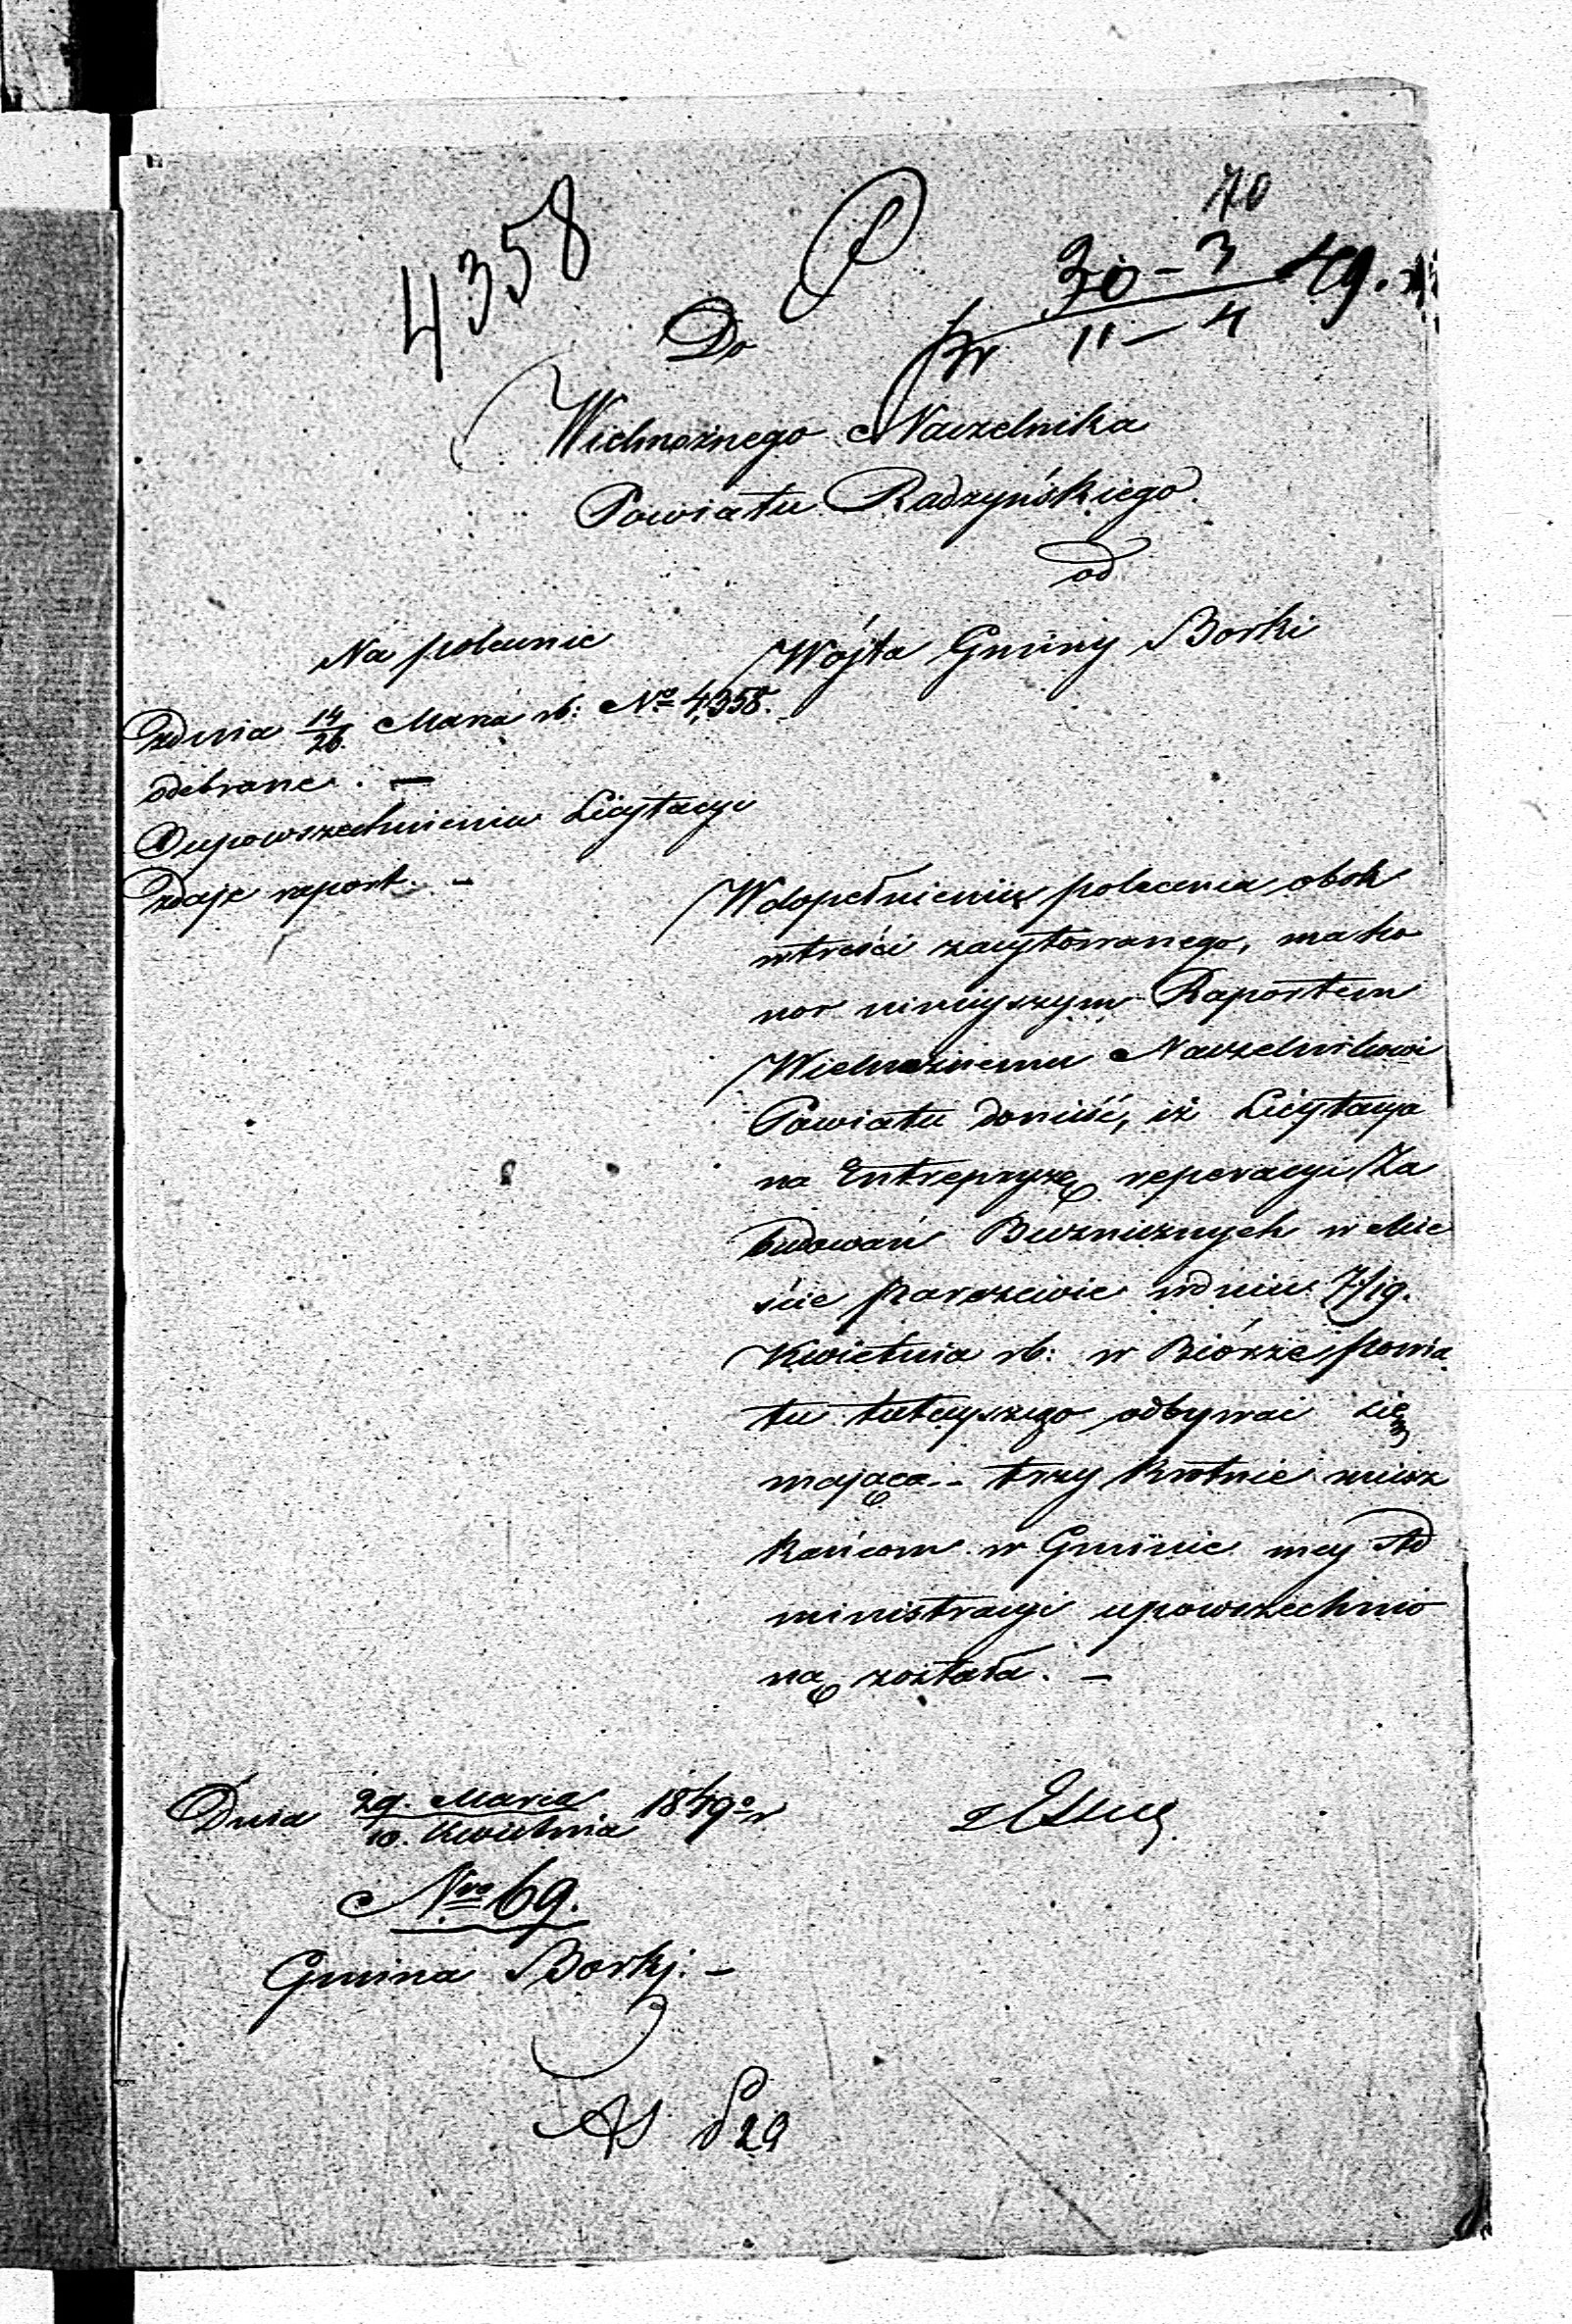 70
4358
30-3
49.
pr 11-4
Do
Wielmożnego Naczelnika
Powiatu Radzyńskiego.
od
Wójta Gminy Borki
Na polecenie
zdnia 14/26. Marca rb: No 4,358.
odebrane. —
O upowszechnieniu Licytacyi
zdaje raport. —
W dopełnieniu polecenia obok
w treści zacytowanego, ma ho
nor niniejszym Raportem
Wielmożnemu Naczelnikowi
Powiatu donieść, iż Licytacya
na Entrepryzę reperacyi Za
budowań Bużnicznych w Mie
ście Parczewie w dniu 7/19.
Kwietnia rb: w Biórze Powia
tu tutejszego odbywać się
mająca - trzy krotnie miesz
kańcom w Gminie mej Ad
ministracyi upowszechnio
ną została. —
Dnia 29. Marca / 10. Kwietnia 1849o r
Nro 69.
Gmina Borki. —